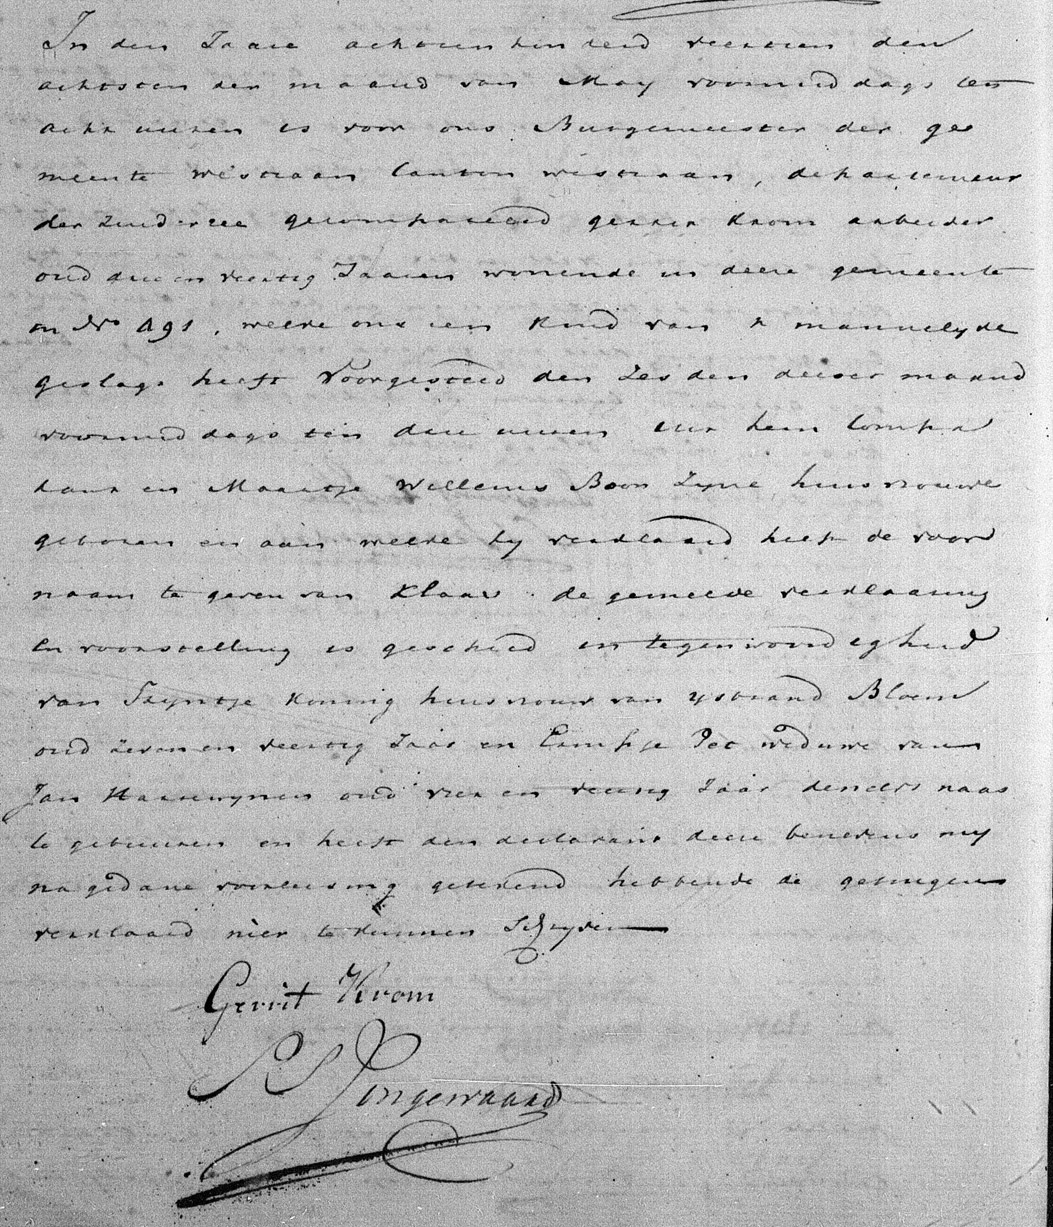 In den Jaare achtien honderd veertien den
achtsten der maand van May voormiddags ten
acht uuren is voor ons Burgemeester der ge
meente westzaan Canton westzaan, departement
der Zuiderzee gecompareerd gerrit Krom arbeider
oud drie en veertig Jaaren wonende in deese gemeente
in No A91, welke ons een kind van t mannelyke
geslagt heeft voorgesteld den Zesden deeser maand
voormiddags ten drie uuren uit hem Compa
rant en Maartje Willems Boon Zyne huisvrouwe
gebooren en aan welke hy verklaard heeft de voor
naam te geven van Klaas. de gemelde verklaaring
En voorstelling is geschied in tegenwoordigheid
van Tryntje Koning huisvrouw van ysbrand Bloem
oud zeven en veertig Jaar en Eemtje Pot weduwe van
Jan Hanswynen oud vier en veertig Jaar derselver naas
te gebuuren en heeft den declarant deese benevens my
na gedane voorleesing getekend hebbende de getuigen
verklaard niet te kunnen Schryven
Gerrit Krom
Jongewaard